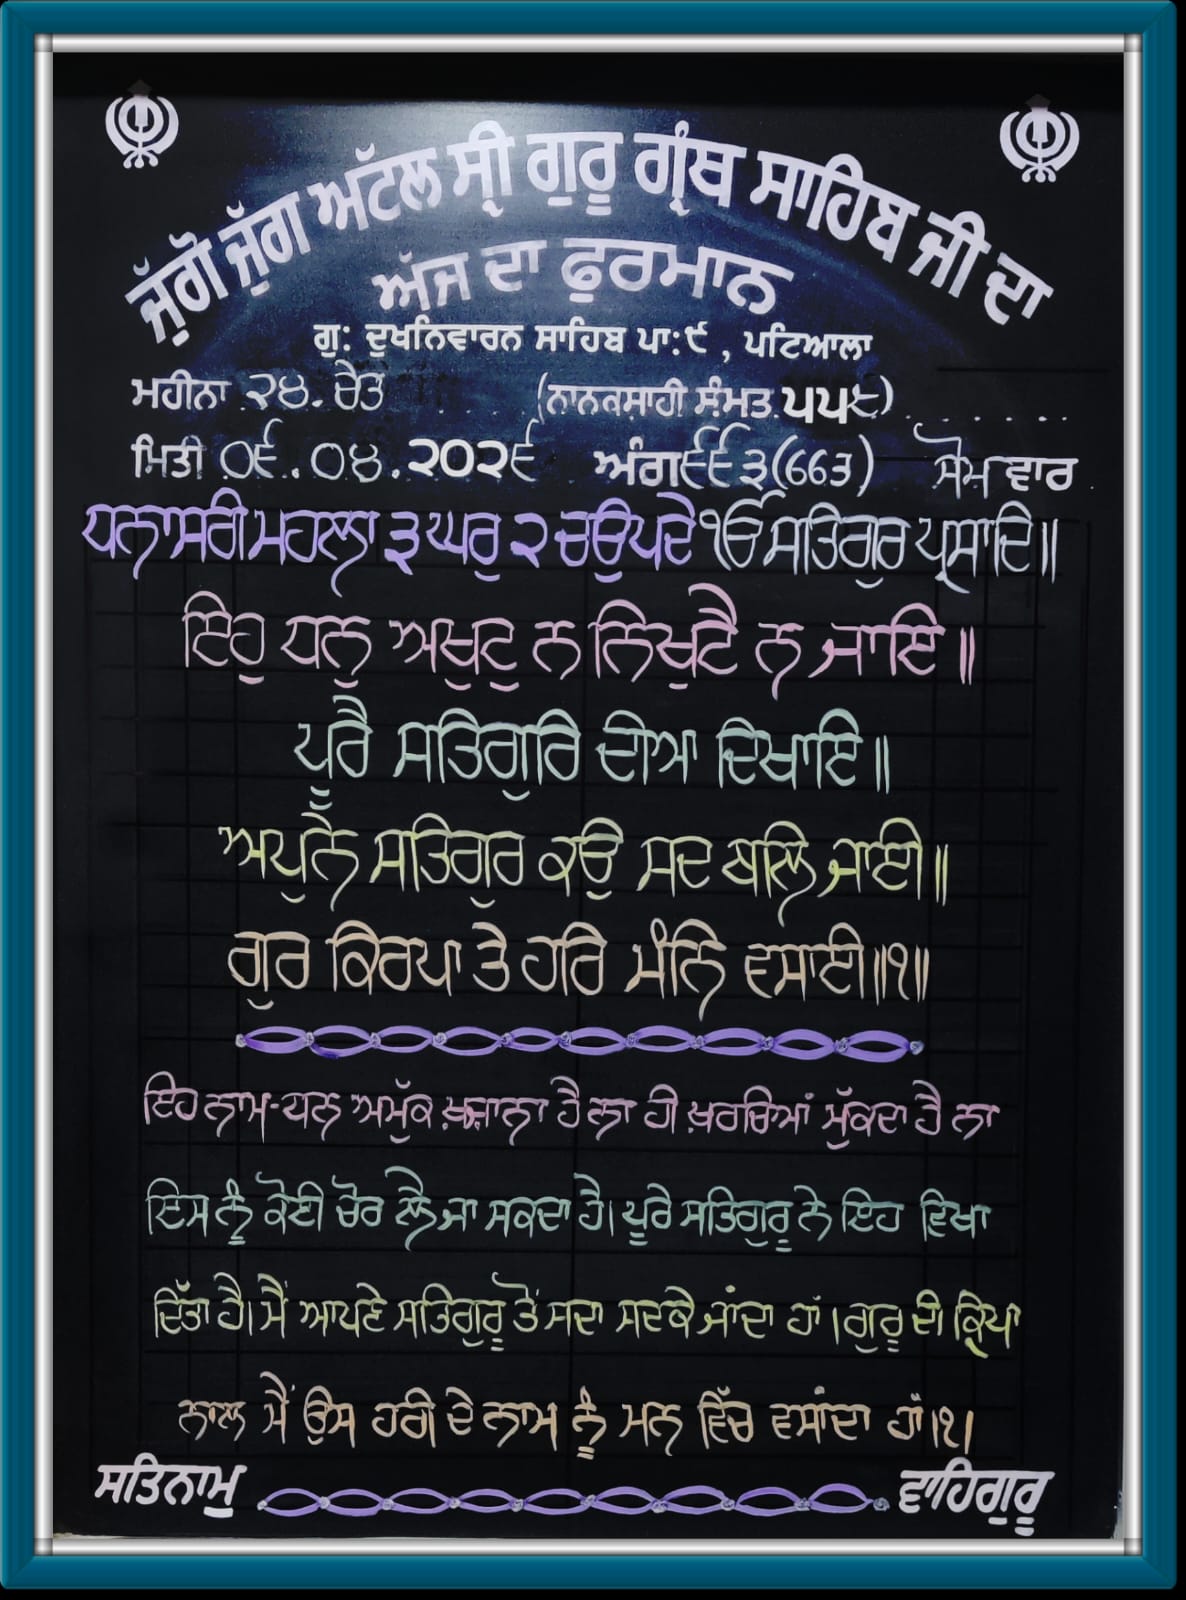 ਜੁੱਗੋ ਜੁੱਗ ਅਟੱਲ ਸ੍ਰੀ ਗੁਰੂ ਗ੍ਰੰਥ ਸਾਹਿਬ ਜੀ ਦਾ
ਅੱਜ ਦਾ ਫੁਰਮਾਨ
ਗੁ: ਦੁਖਨਿਵਾਰਨ ਸਾਹਿਬ ਪਾ:੯ , ਪਟਿਆਲਾ
ਮਹੀਨਾ ੨੪. ਚੇਤ (ਨਾਨਕਸ਼ਾਹੀ ਸੰਮਤ ੫੫੮)
ਮਿਤੀ ੦੬.੦੪.੨੦੨੬ ਅੰਗ ੬੬੩(663) ਸੋਮ ਵਾਰ
ਧਨਾਸਰੀ ਮਹਲਾ ੩ ਘਰੁ ੨ ਚਉਪਦੇ ੴ ਸਤਿਗੁਰ ਪ੍ਰਸਾਦਿ॥
ਇਹੁ ਧਨੁ ਅਖੁਟੁ ਨ ਨਿਖੁਟੈ ਨ ਜਾਇ॥
ਪੂਰੈ ਸਤਿਗੁਰਿ ਦੀਆ ਦਿਖਾਇ॥
ਅਪੁਨੇ ਸਤਿਗੁਰ ਕਉ ਸਦ ਬਲਿ ਜਾਈ॥
ਗੁਰ ਕਿਰਪਾ ਤੇ ਹਰਿ ਮੰਨਿ ਵਸਾਈ॥੧॥
ਇਹ ਨਾਮ-ਧਨ ਅਮੁੱਕ ਖ਼ਜ਼ਾਨਾ ਹੈ ਨਾ ਹੀ ਖ਼ਰਚਿਆਂ ਮੁੱਕਦਾ ਹੈ ਨਾ
ਇਸ ਨੂੰ ਕੋਈ ਚੋਰ ਲੈ ਜਾ ਸਕਦਾ ਹੈ। ਪੂਰੇ ਸਤਿਗੁਰੂ ਨੇ ਇਹ ਵਿਖਾ
ਦਿੱਤਾ ਹੈ। ਮੈਂ ਆਪਣੇ ਸਤਿਗੁਰੂ ਤੋਂ ਸਦਾ ਸਦਕੇ ਜਾਂਦਾ ਹਾਂ। ਗੁਰੂ ਦੀ ਕ੍ਰਿਪਾ
ਨਾਲ ਮੈਂ ਉਸ ਹਰੀ ਦੇ ਨਾਮ ਨੂੰ ਮਨ ਵਿੱਚ ਵਸਾਂਦਾ ਹਾਂ।੧।
ਸਤਿਨਾਮੁ ਵਾਹਿਗੁਰੂ